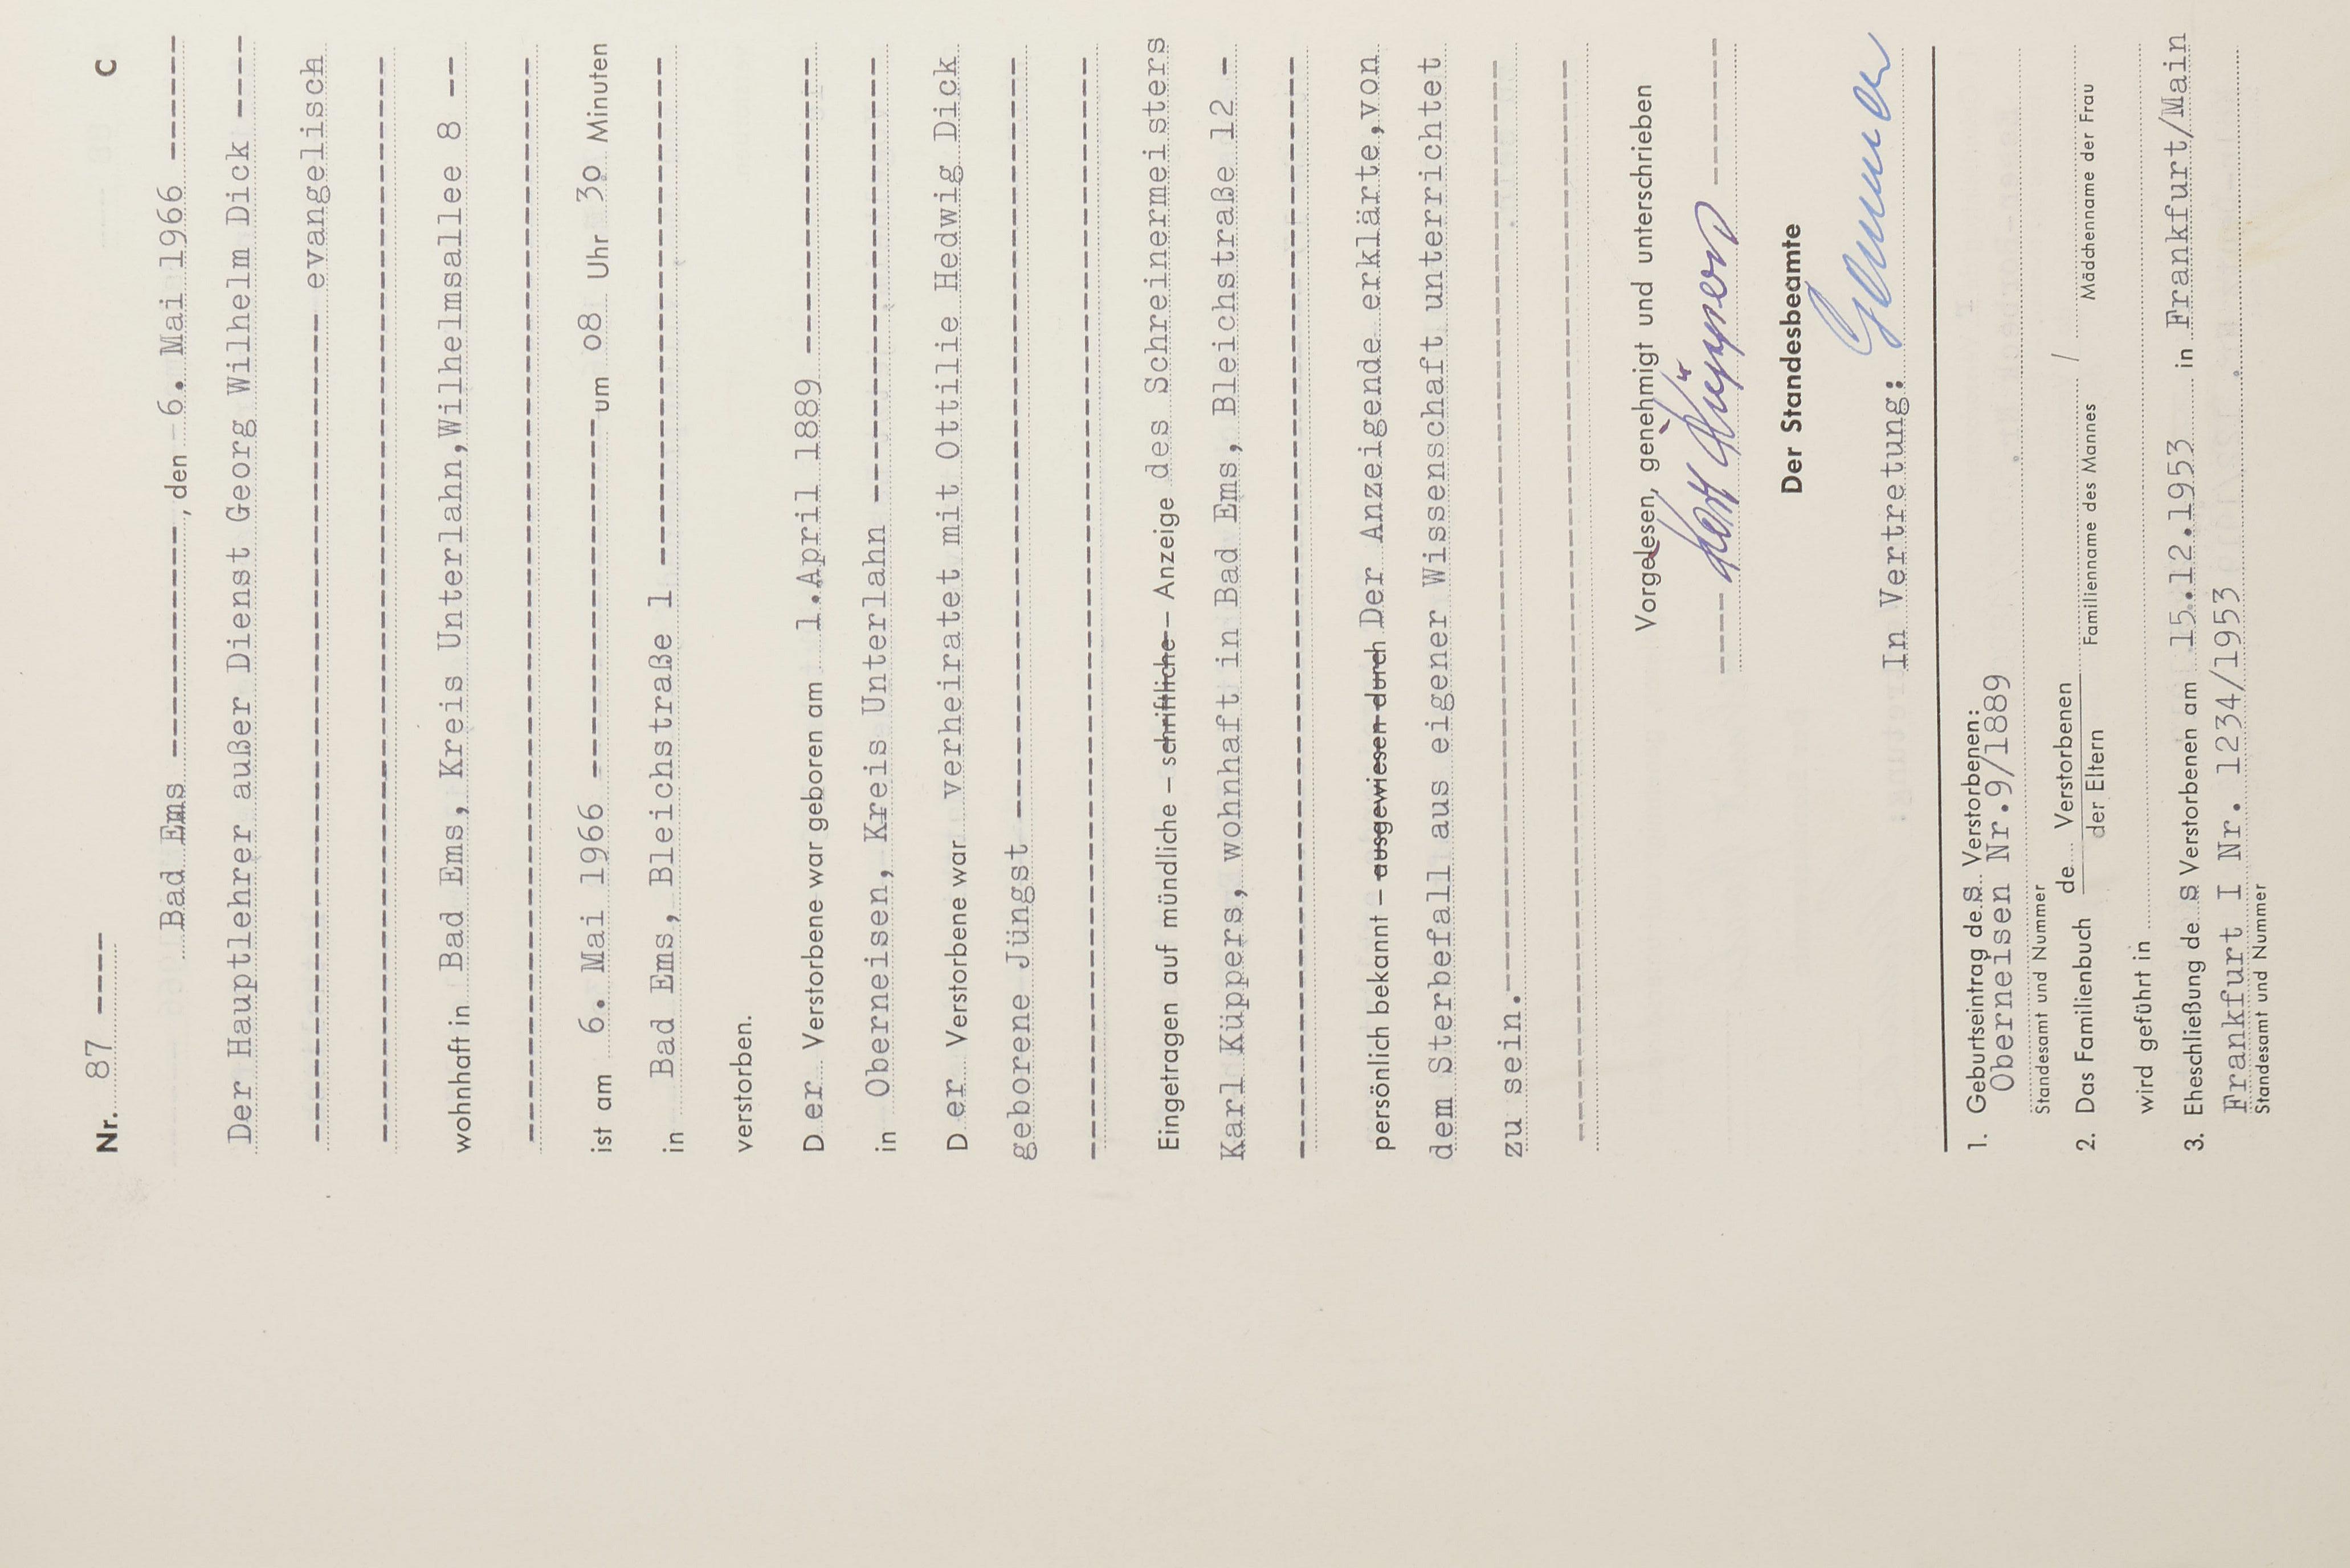 Nr. 87 ---- C
Bad Ems -------------, den 6. Mai 1966 ------
Der Hauptlehrer außer Dienst Georg Wilhelm Dick ----
------------------------------ evangelisch
wohnhaft in Bad Ems, Kreis Unterlahn, Wilhelmsallee 8 --
ist am 6. Mai 1966 -------------------- um 08 Uhr 30 Minuten
in Bad Ems, Bleichstraße 1 ------------------------------
verstorben.
Der Verstorbene war geboren am 1.April 1889 -----------------
in Oberneisen, Kreis Unterlahn --------------------------
Der Verstorbene war verheiratet mit Ottilie Hedwig Dick
geborene Jüngst --------------------------------------------
Eingetragen auf mündliche – schriftliche – Anzeige des Schreinermeisters
Karl Küppers, wohnhaft in Bad Ems, Bleichstraße 12 -
persönlich bekannt – ausgewiesen durch Der Anzeigende erklärte,von
dem Sterbefall aus eigener Wissenschaft unterrichtet
zu sein.----------------------------------------------------
Vorgelesen, genehmigt und unterschrieben
----- Karl Küppers --------
Der Standesbeamte
In Vertretung:
1. Geburtseintrag des Verstorbenen:
Oberneisen Nr.9/1889
Standesamt und Nummer
2. Das Familienbuch de Verstorbenen / der Eltern
Familienname des Mannes / Mädchenname der Frau
wird geführt in
3. Eheschließung des Verstorbenen am 15.12.1953 in Frankfurt/Main
Frankfurt I Nr. 1234/1953
Standesamt und Nummer